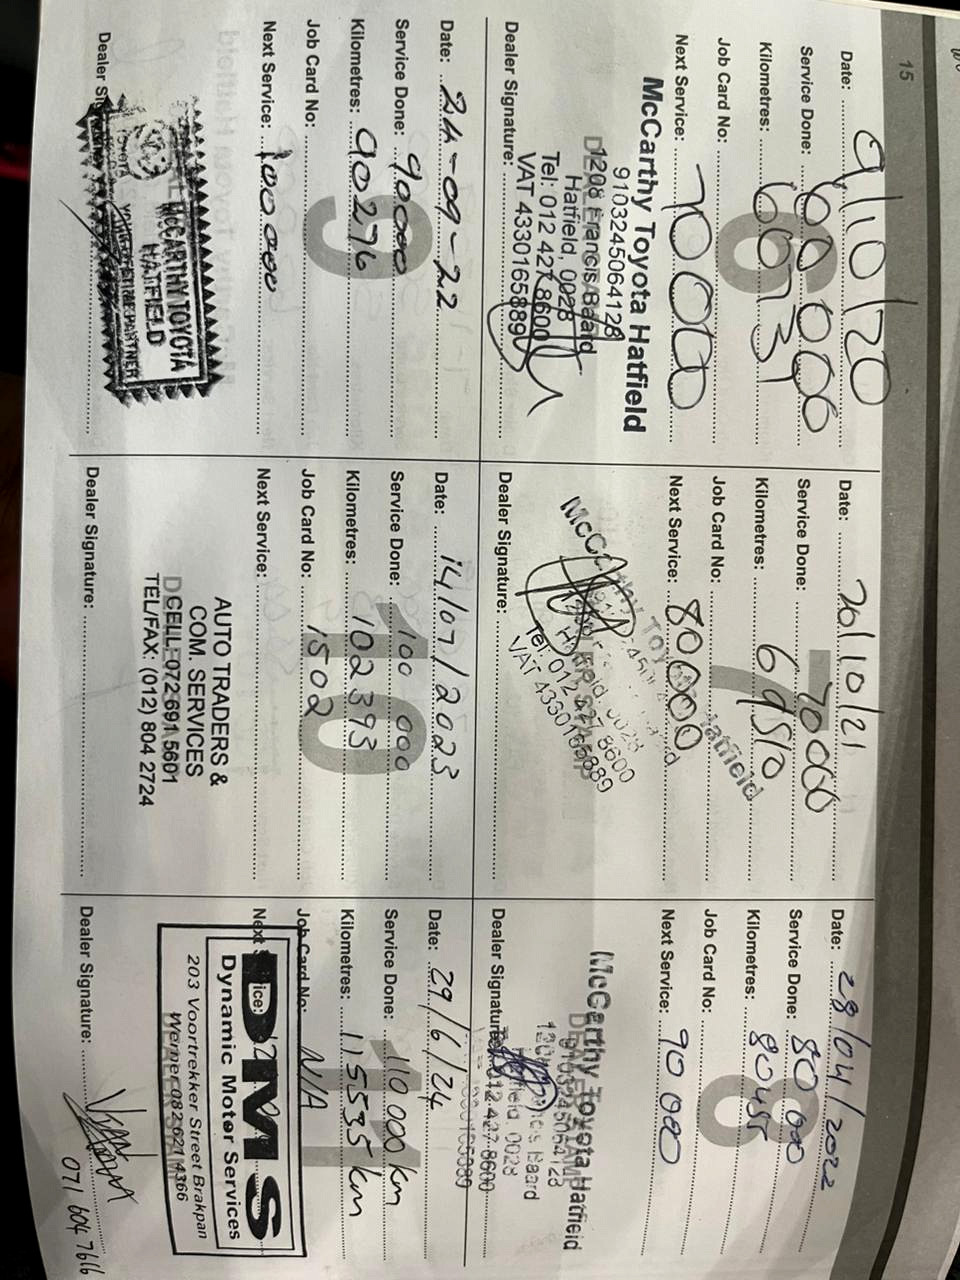 15
Date: 9/10/20
Service Done: 60 000
Kilometres: 60931
Job Card No:
Next Service: 70000
McCarthy Toyota Hatfield
9103245064128
1208 Francis Baard
Hatfield, 0028
Tel: 012 427 8600
VAT 4330165889
Dealer Signature:
6
Date: 20/10/21
Service Done: 70000
Kilometres: 69510
Job Card No:
Next Service: 80000
Hatfield
Tel: 012 427 8600
VAT 4330165889
Dealer Signature:
7
Date: 28/04/2022
Service Done: 80 000
Kilometres: 80455
Job Card No:
Next Service: 90 000
McCarthy Toyota Hatfield
9103245064128
0028
012 427 8600
Dealer Signature:
8
Date: 24-09-22
Service Done: 90000
Kilometres: 90276
Job Card No:
Next Service: 100 000
McCARTHY TOYOTA
HATFIELD
YOUR LIFETIME PARTNER
Dealer
9
Date: 14/07/2023
Service Done: 100 000
Kilometres: 102393
Job Card No: 1502
Next Service:
AUTO TRADERS &
COM. SERVICES
CELL 072 691 5601
TEL/FAX: (012) 804 2724
Dealer Signature:
10
Date: 29/6/24
Service Done: 110 000 km
Kilometres: 115535 km
Job Card No: N/A
Next Service:
DMS
Dynamic Motor Services
203 Voortrekker Street Brakpan
Werner 082 621 4366
Dealer Signature:
071 604 7616
11